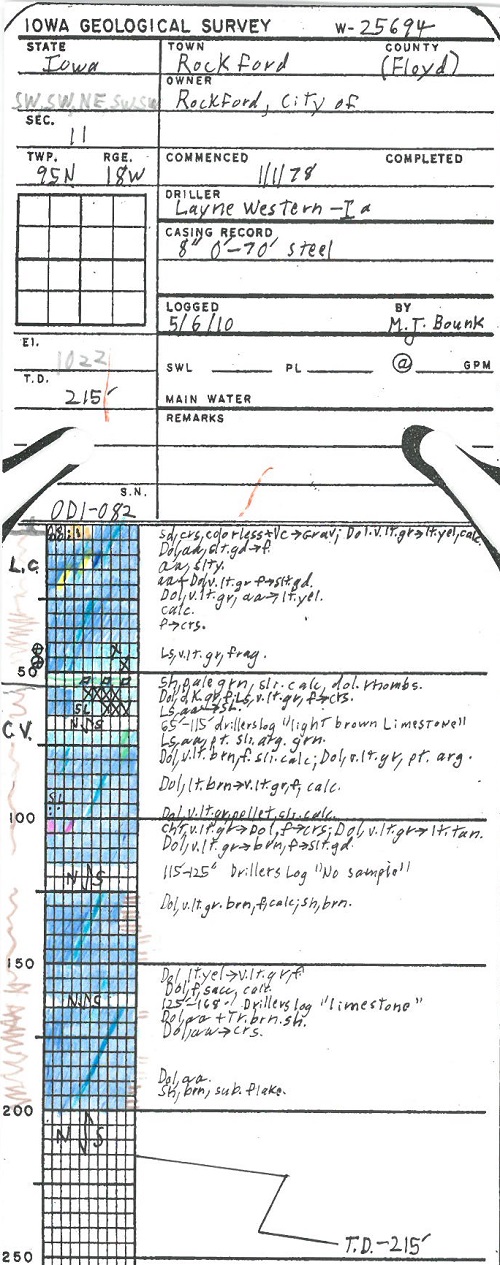 IOWA GEOLOGICAL SURVEY W-25694
STATE
Iowa
TOWN
Rockford
COUNTY
(Floyd)
SW, SW, NE, SW, SW
OWNER
Rockford, City of
SEC.
11
TWP. RGE.
95N 18W
COMMENCED COMPLETED
1/1/78
DRILLER
Layne Western-Ia
CASING RECORD
8" 0'-70' steel
LOGGED BY
5/6/10 M.J. Bounk
El.
1022
SWL PL @ GPM
T.D.
215'
MAIN WATER
REMARKS
S.N.
OD1-082
L.C.
sd, crs, colorless+Vc→Grav; Dol. v.lt.gr→lt.yel, calc
Dol, aa, slt.gd→f.
aa, slty.
aa+Dol, v.lt.gr f→slt.gd.
Dol, v.lt.gr, aa→lt.yel.
calc.
f→crs.
Ls, v.lt.gr, frag.
50
sh, pale grn, sli. calc, dol. rhombs.
Dol, dk.gr, f; Ls, v.lt.gr, f→crs.
SL
Ls, aa→sh.
C.V.
N S
65'-115' drillers log "light brown Limestone"
Ls, aa, pt. sli. arg. grn.
Dol, v.lt.brn, f. sli. calc; Dol, v.lt.gr, pt. arg.
Dol, lt.brn→v.lt.gr, f, calc.
SL
Dol, v.lt.gr, pellet, sli. calc.
100
cht, v.lt.gr→Dol, f→crs; Dol, v.lt.gr→lt.tan.
Dol, v.lt.gr→brn, f→slt.gd.
N S
115'-125' Drillers Log "No sample"
Dol, v.lt.gr. brn, f, calc; sh, brn.
150
Dol, lt.yel→v.lt.gr, f
Dol, f, sacc, calc.
N S
125'-168' Drillers log "limestone"
Dol, aa + Tr. brn. sh.
Dol, aa→crs.
Dol, aa.
sh, brn, sub. flake.
200
N S
T.D.-215'
250